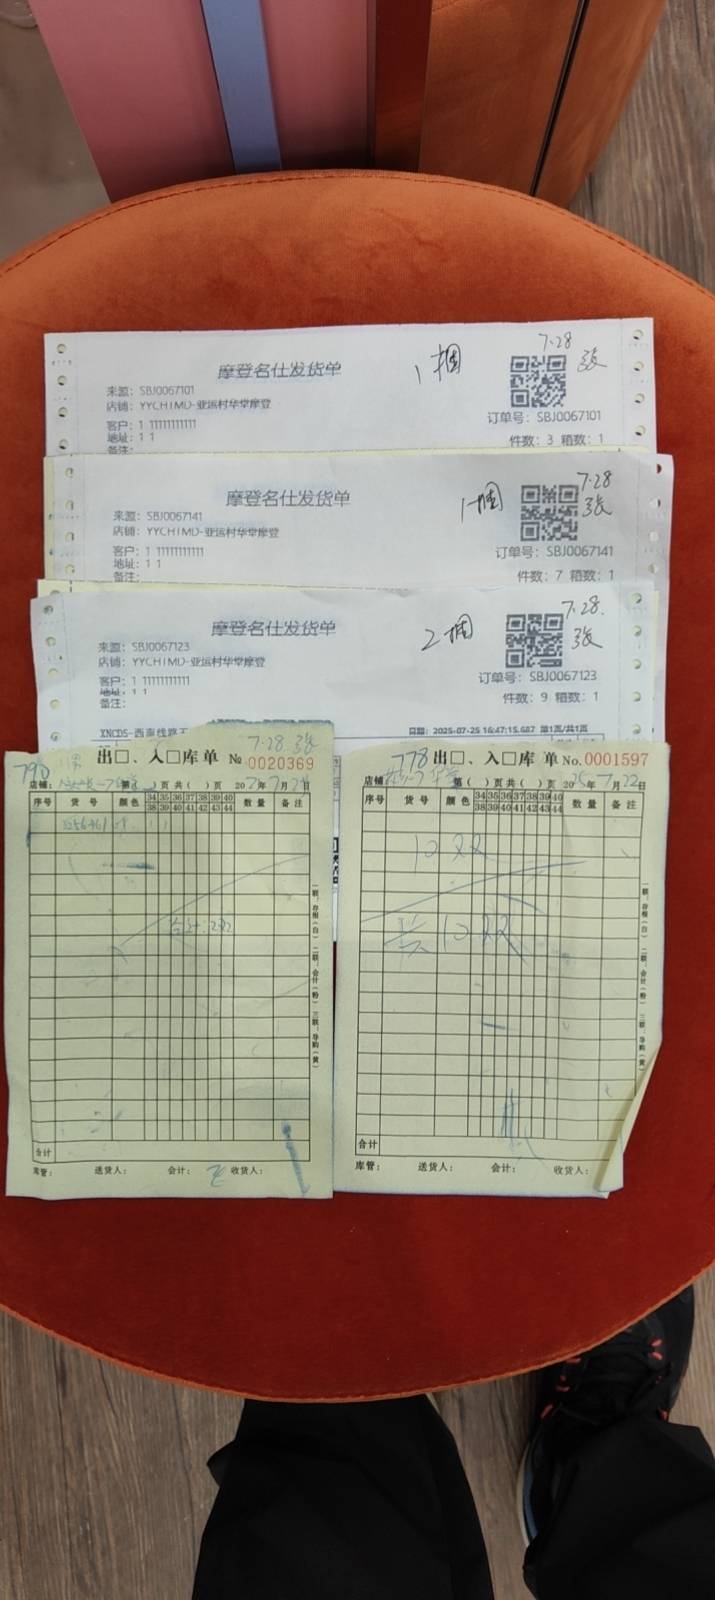 7-28
1捆
张
摩登名仕发货单
来源：SBJ0067101
店铺：YYCHTMD-亚运村华堂摩登
订单号：SBJ0067101
客户：1 11111111111
地址：1 1
件数：3 箱数：1
备注：
7-28
1捆
张
摩登名仕发货单
来源：SBJ0067141
店铺：YYCHTMD-亚运村华堂摩登
订单号：SBJ0067141
客户：1 11111111111
地址：1 1
件数：7 箱数：1
备注：
7-28.
2捆
张
摩登名仕发货单
来源：SBJ0067123
店铺：YYCHTMD-亚运村华堂摩登
订单号：SBJ0067123
客户：1 11111111111
地址：1 1
件数：9 箱数：1
备注：
日期：2025-07-25 16:47:15.687 第1页/共1页
7-28 张
790
出□、入□库单 № 0020369
店铺 第( )页共( )页 20 年7月 日
序号 货号 颜色 34 35 36 37 38 39 40 数量 备注
38 39 40 41 42 43 44
合计
库管： 送货人： 会计： 收货人：
一联，存根(白) 二联，会计(粉) 三联，导购(黄)
778
出□、入□库单 No.0001597
店铺 第( )页共( )页 2025年7月22日
序号 货号 颜色 34 35 36 37 38 39 40 数量 备注
38 39 40 41 42 43 44
10双
共10双
合计
库管： 送货人： 会计： 收货人：
一联，存根(白) 二联，会计(粉) 三联，导购(黄)